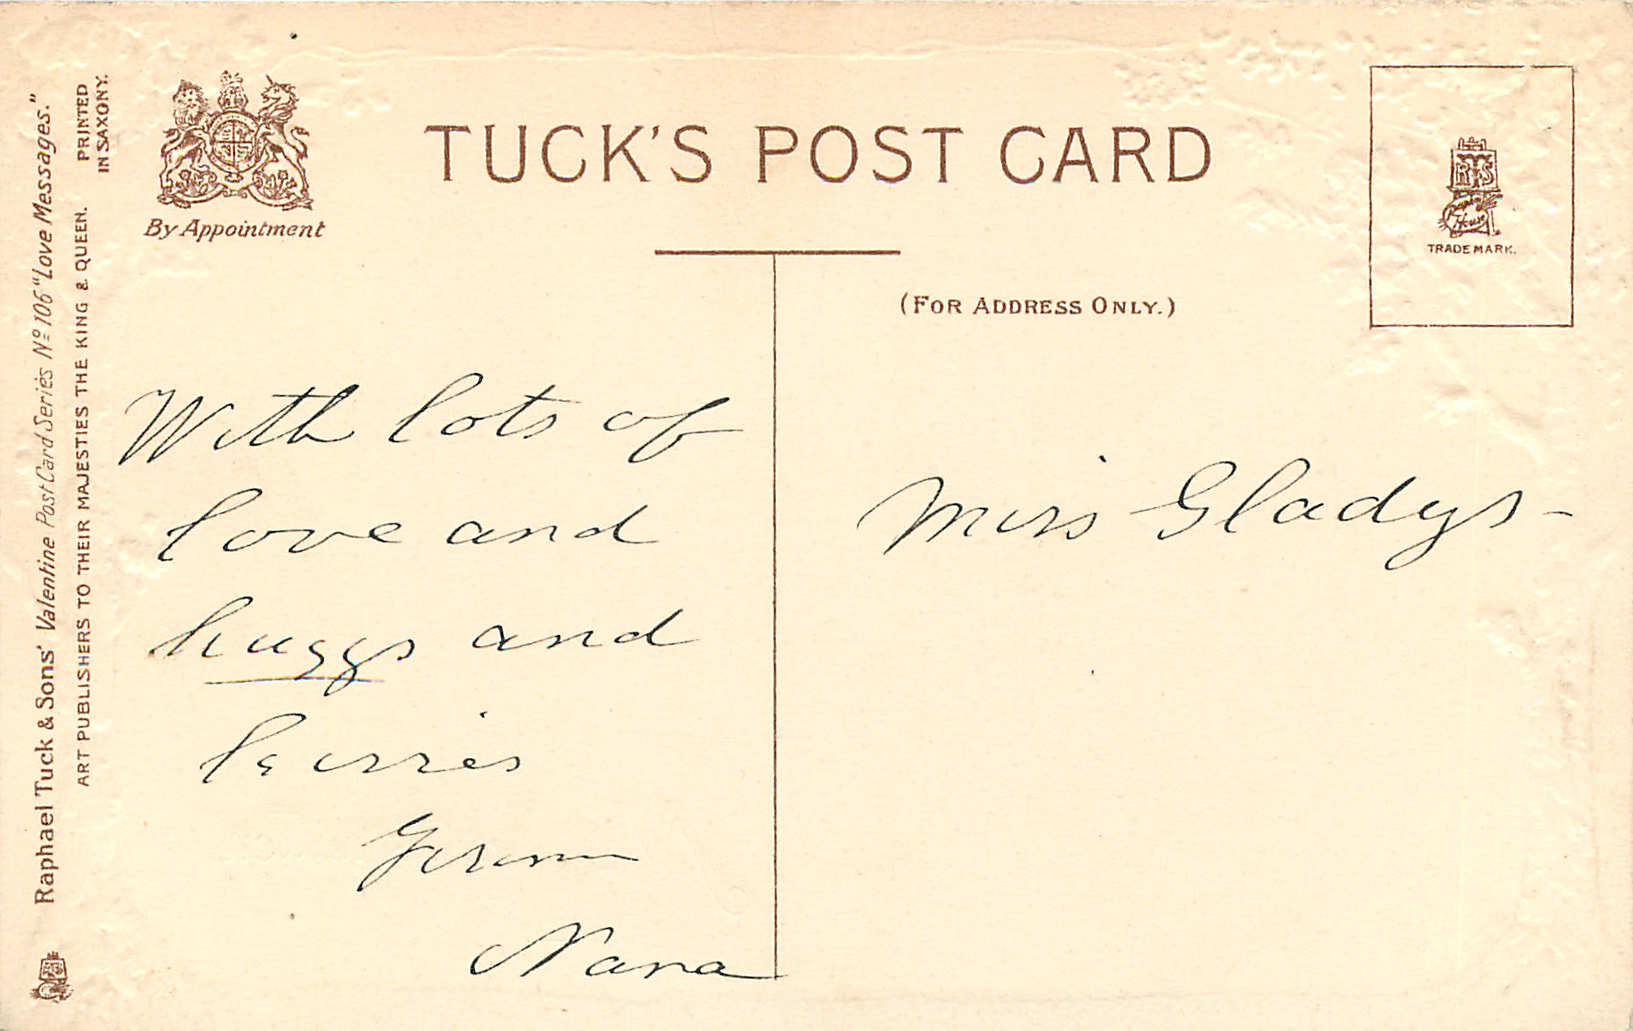 TUCK'S POST CARD
By Appointment
(FOR ADDRESS ONLY.)
RTS
Raphael
House
TRADE MARK.
Raphael Tuck & Sons' Valentine Post Card Series Nº 106 "Love Messages."
ART PUBLISHERS TO THEIR MAJESTIES THE KING & QUEEN.
PRINTED
IN SAXONY.
With lots of
love and
huggs and
kisses
From
Nana
Miss Gladys -